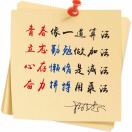 青春像一道算法
立志勤勉做加法
心存懒惰是减法
合力拼搏用乘法